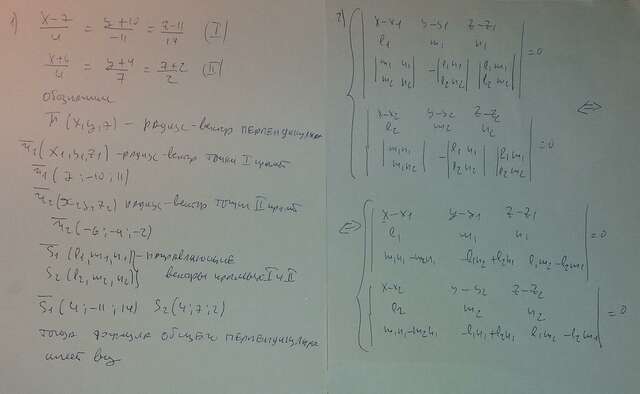 1) (x-7)/4 = (y+10)/-11 = (z-11)/14 (I)
(x+6)/4 = (y+4)/7 = (z+2)/2 (II)
обозначим
r̄ (x, y, z) – радиус-вектор перпендикуляра
r̄₁ (x₁, y₁, z₁) – радиус-вектор точки I прямой
r̄₁ (7; -10; 11)
r̄₂ (x₂ y₂, z₂) радиус-вектор точки II прямой
r̄₂ (-6; -4; -2)
S̄₁ (l₁, m₁, n₁) – направляющие
S₂ (l₂, m₂, n₂) векторы прямых I и II
S̄₁ (4; -11; 14) S₂ (4; 7; 2)
тогда формула общего перпендикуляра
имеет вид
2)
x-x₁ y-y₁ z-z₁
l₁ m₁ n₁ = 0
|m₁ n₁| -|l₁ n₁| |l₁ m₁|
|m₂ n₂| |l₂ n₂| |l₂ m₂|
<=>
x-x₂ y-y₂ z-z₂
l₂ m₂ n₂ = 0
|m₁ n₁| -|l₁ n₁| |l₁ m₁|
|m₂ n₂| |l₂ n₂| |l₂ m₂|
<=>
x-x₁ y-y₁ z-z₁
l₁ m₁ n₁ = 0
m₁n₂-m₂n₁ -l₁n₂+l₂n₁ l₁m₂-l₂m₁
x-x₂ y-y₂ z-z₂
l₂ m₂ n₂ = 0
m₁n₂-m₂n₁ -l₁n₂+l₂n₁ l₁m₂-l₂m₁